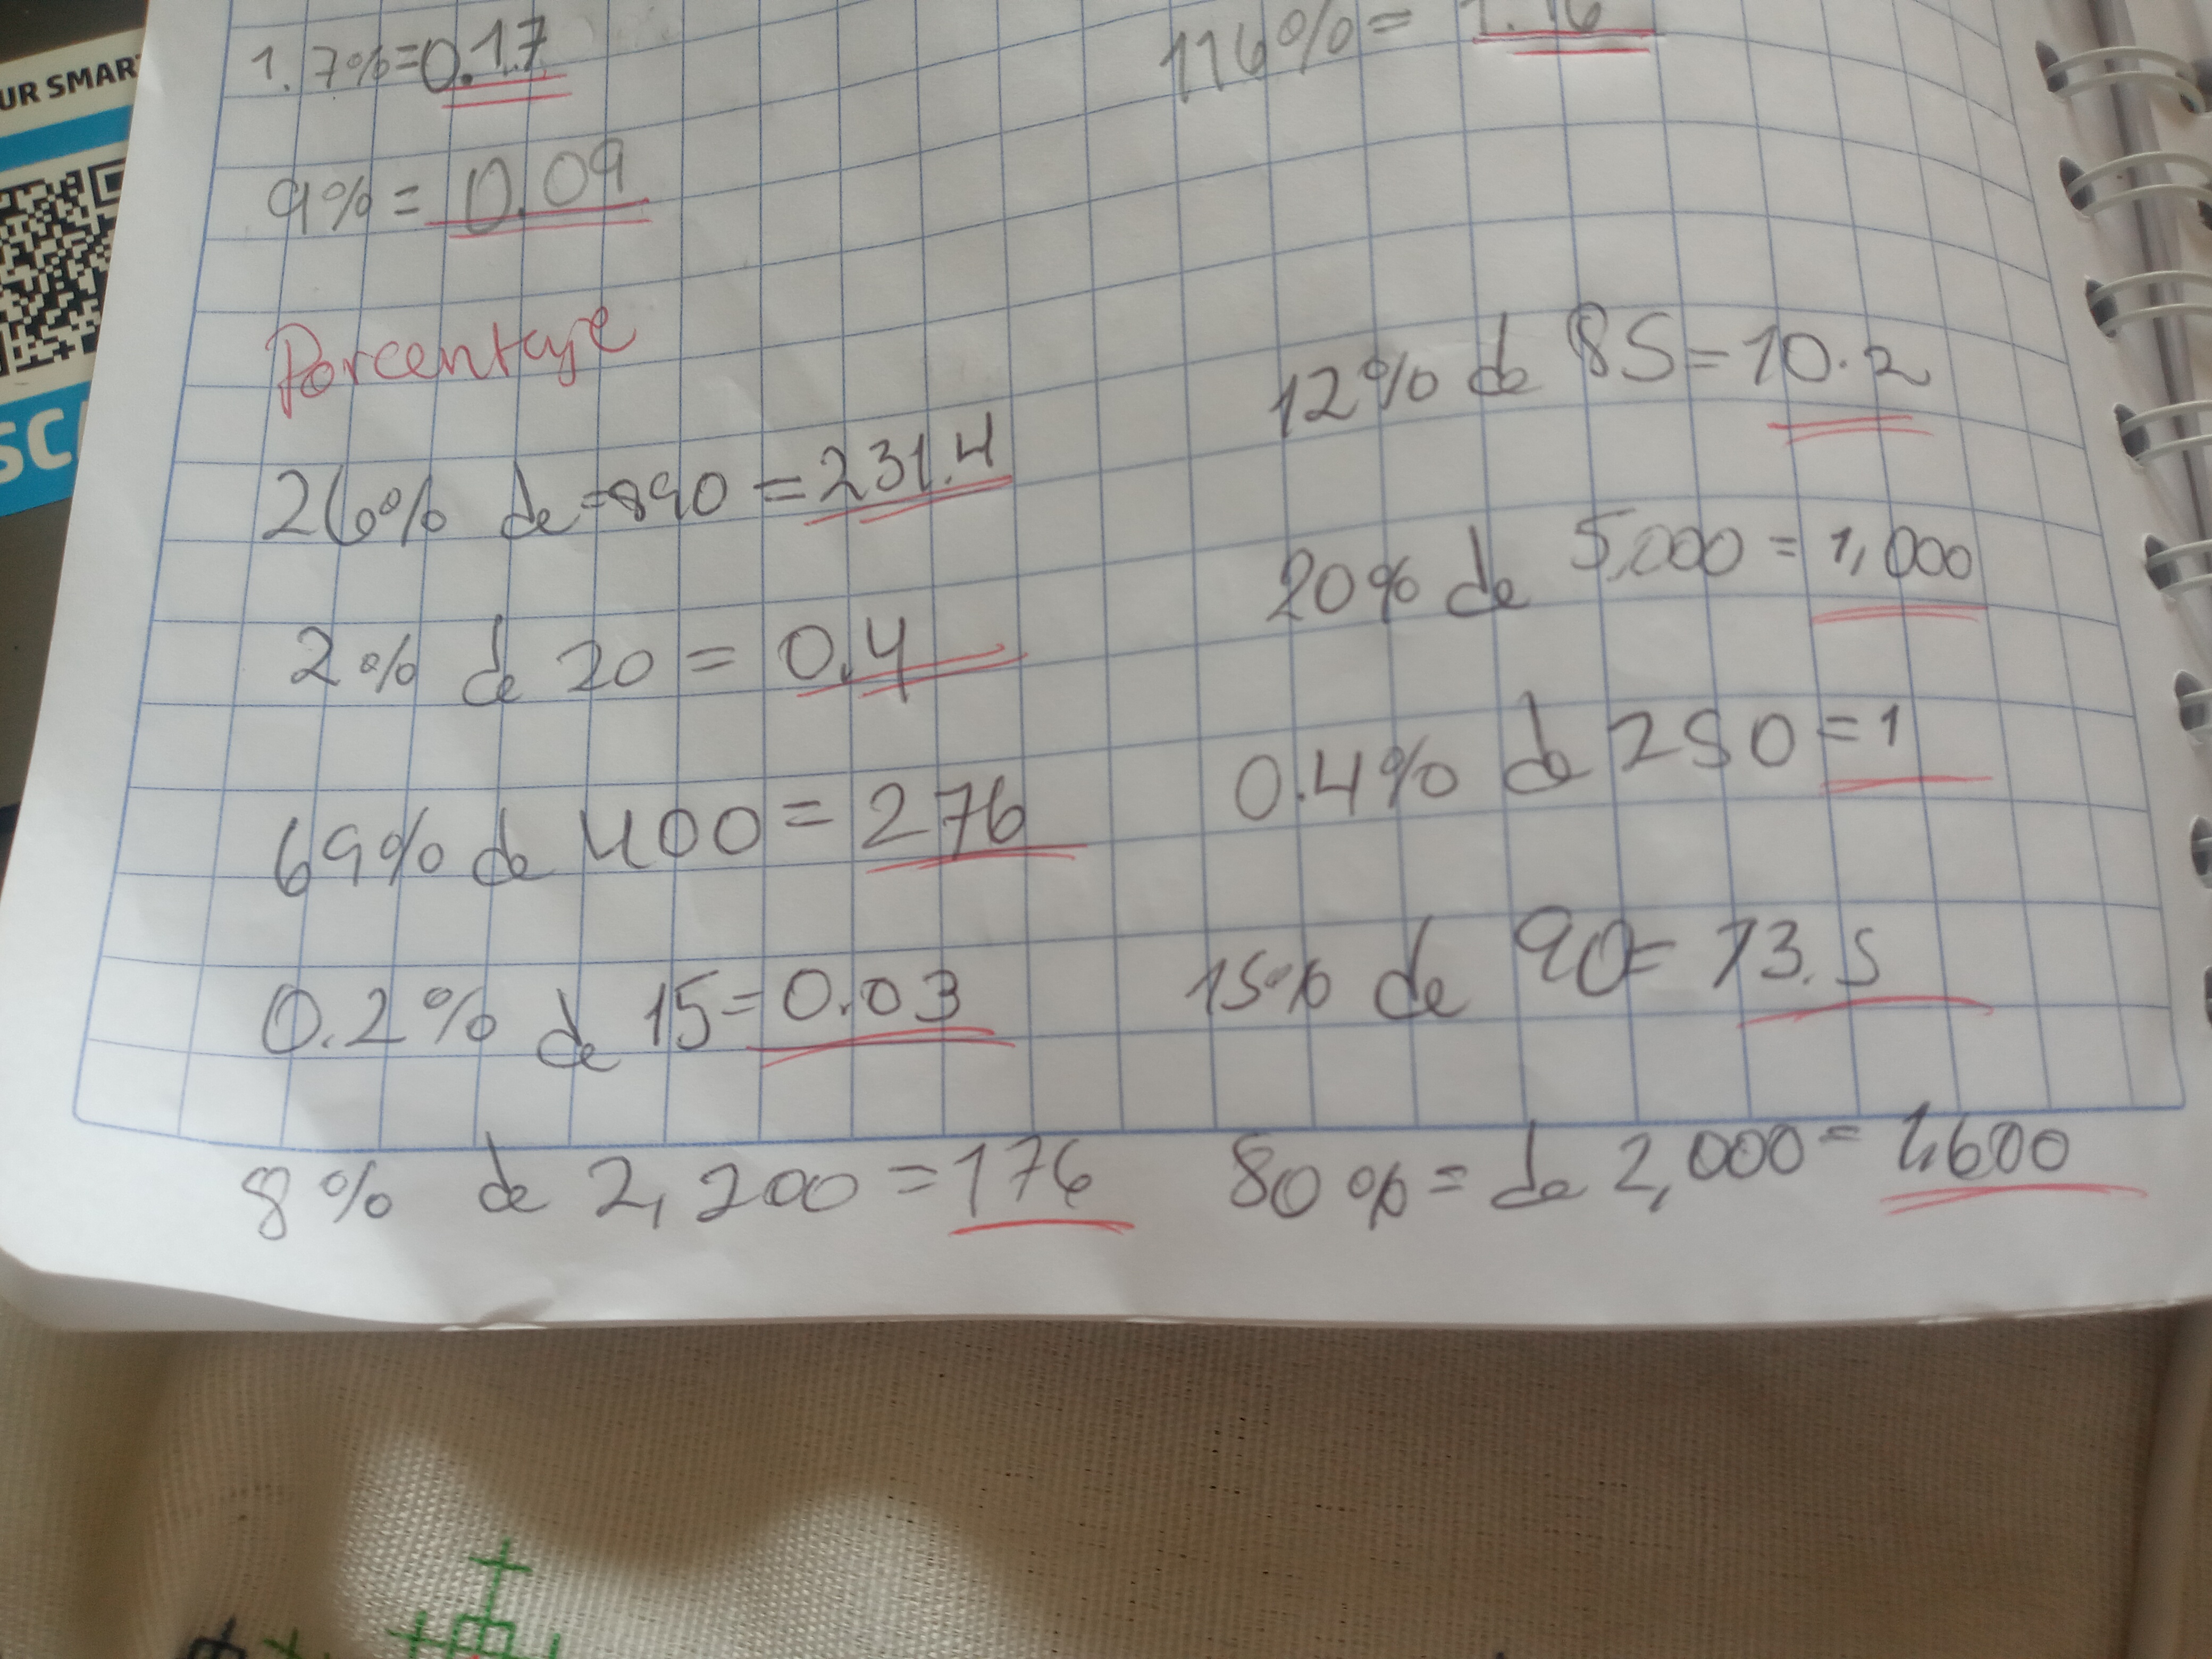 UR SMAR
1.7%=0.17
116%= 1.16
9%= 0.09
Porcentaje
26% de =890 = 231.4
12% de 85=10.2
2% de 20 = 0.4
20% de 5,000 = 1,000
69% de 400 = 276
0.4% de 250 = 1
0.2% de 15= 0.03
15% de 90= 13.5
8% de 2,200 = 176
80%= de 2,000= 1,600
SC